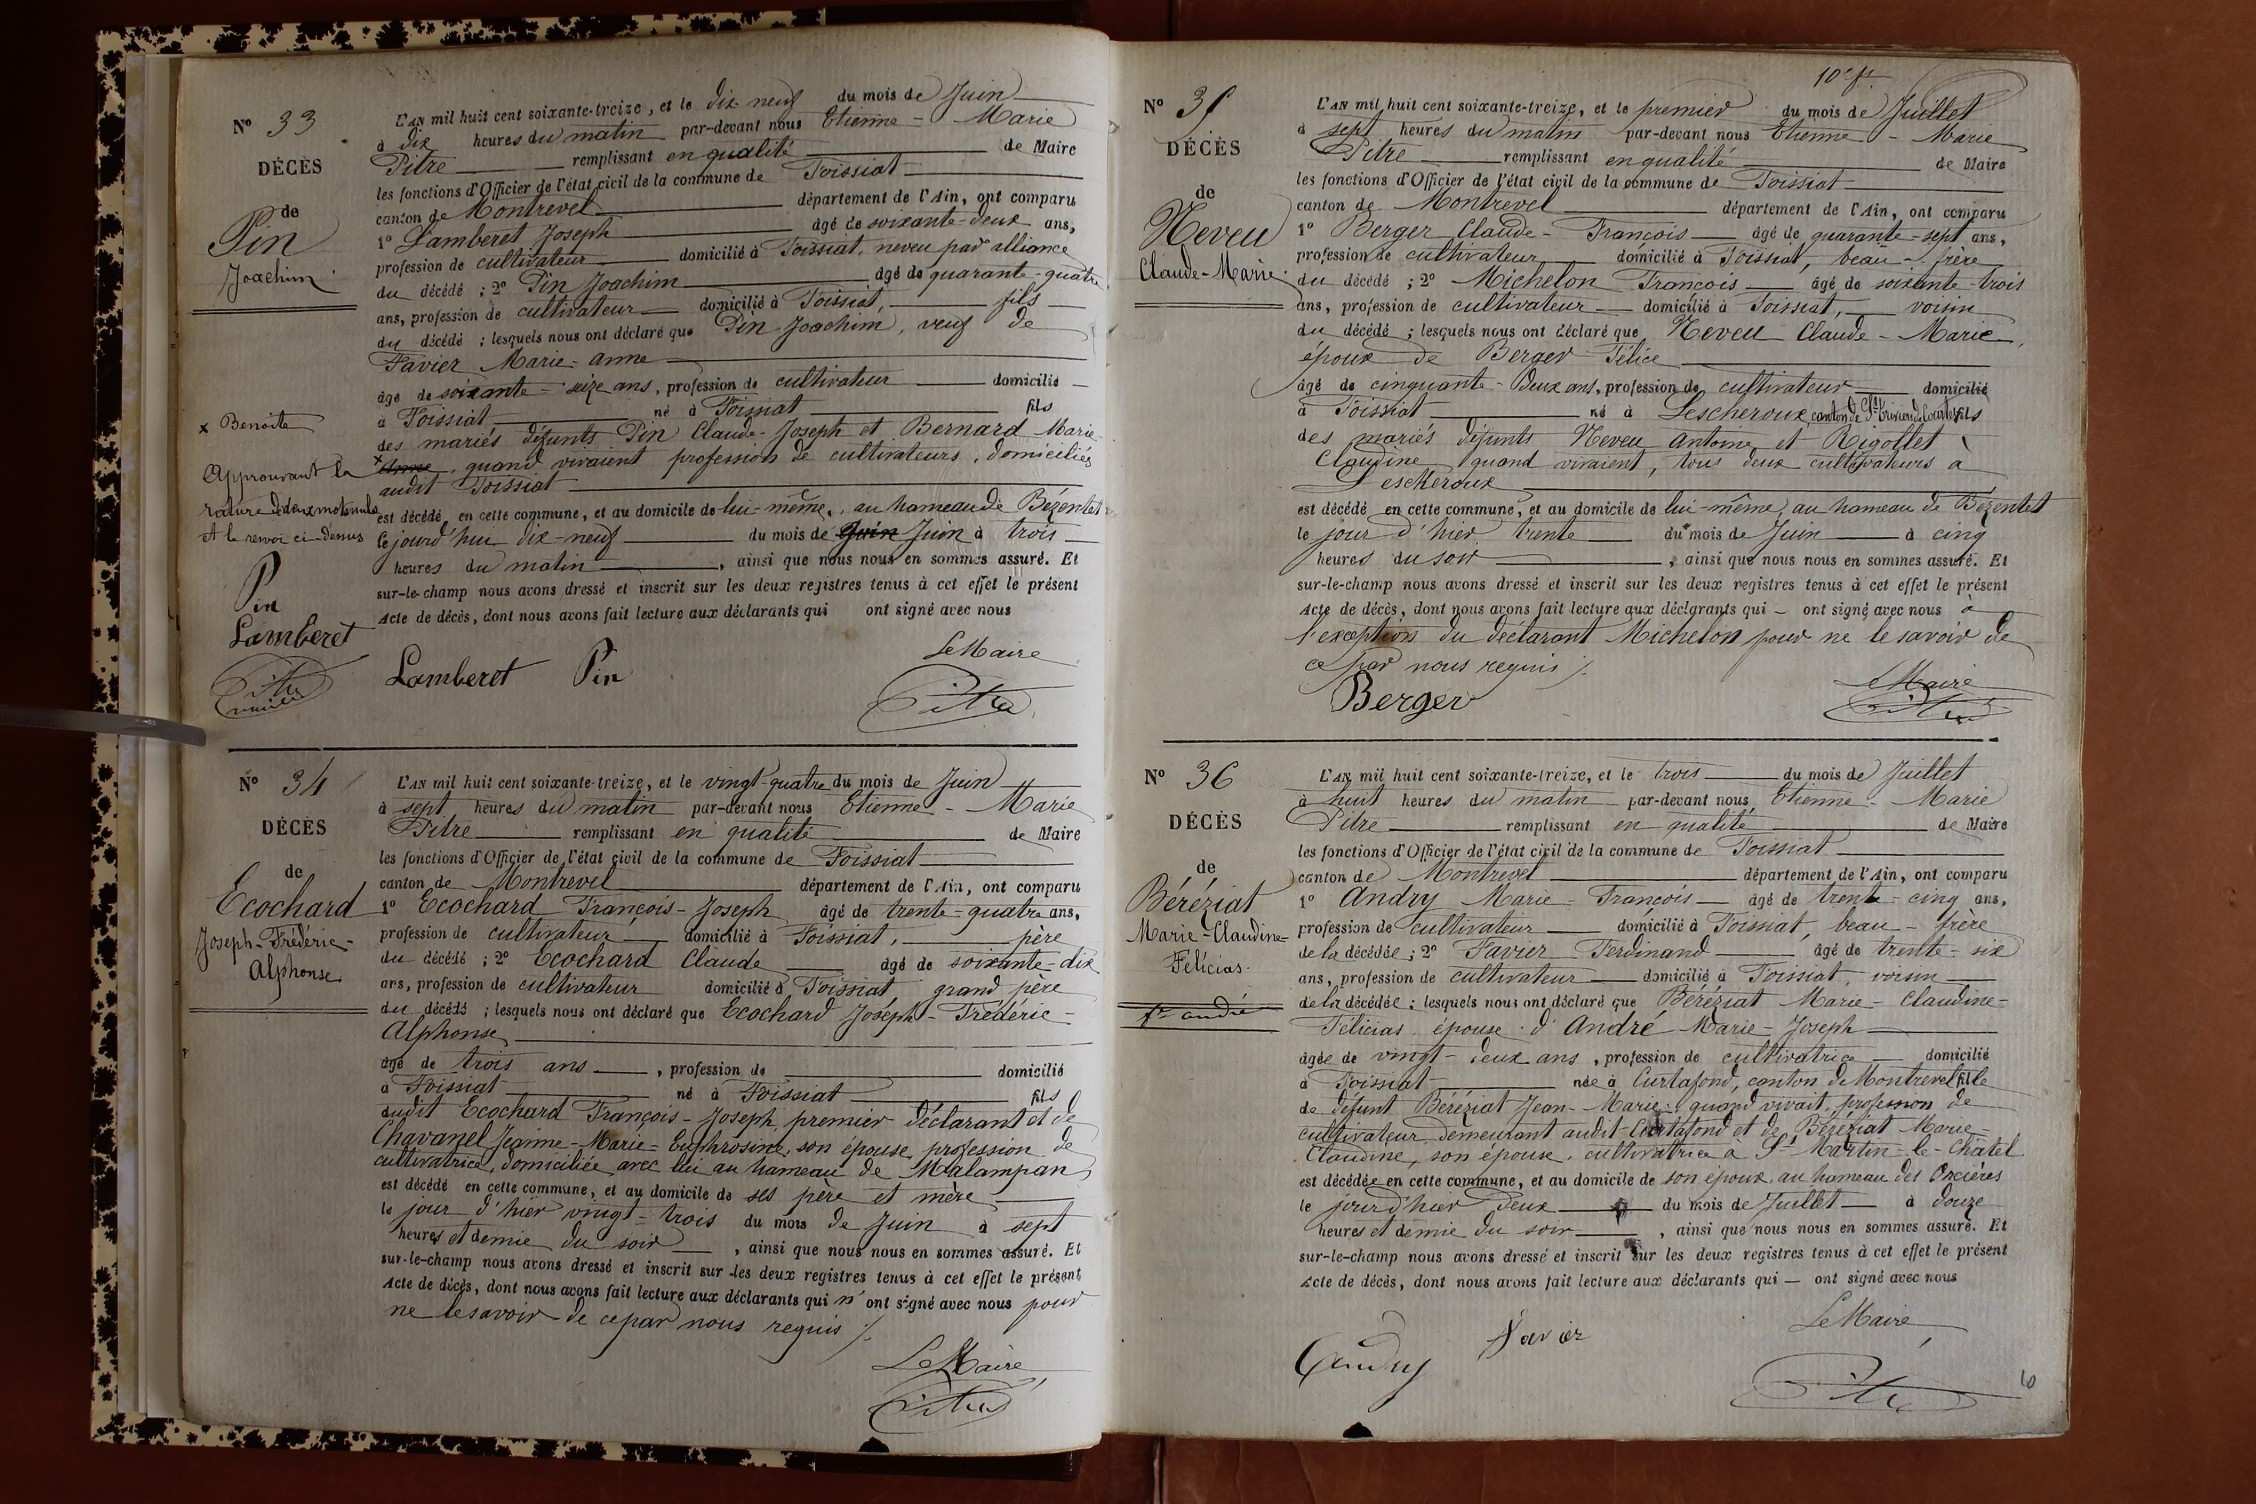 N° 33
DÉCÈS
de
Pin
Joachim
L'AN mil huit cent soixante-treize, et le dix-neuf du mois de Juin
à dix heures du matin par-devant nous Etienne-Marie
Pitre remplissant en qualité de Maire
les fonctions d'Officier de l'état civil de la commune de Foissiat
canton de Montrevel département de l'Ain, ont comparu
1° Lamberet Joseph âgé de soixante-deux ans,
profession de cultivateur domicilié à Foissiat, neveu par alliance
du décédé ; 2° Pin Joachim âgé de quarante-quatre
ans, profession de cultivateur domicilié à Foissiat, fils
du décédé ; lesquels nous ont déclaré que Pin Joachim, veuf de
Favier Marie-anne
âgé de soixante-seize ans, profession de cultivateur domicilié
à Foissiat né à Foissiat fils
des mariés défunts Pin Claude-Joseph et Bernard Marie
x Anne, quand vivaient profession de cultivateurs, domiciliés
audit Foissiat
est décédé en cette commune, et au domicile de lui-même, au hameau de Bézentet
le jourd'hui dix-neuf du mois de Juin Juin à trois
heures du matin, ainsi que nous nous en sommes assuré. Et
sur-le-champ nous avons dressé et inscrit sur les deux registres tenus à cet effet le présent
Acte de décès, dont nous avons fait lecture aux déclarants qui ont signé avec nous
x Benoite
Approuvant la
rature de deux mots nuls
et le renvoi ci-dessus
Pin
Lamberet
Pitre
maire
Le Maire
Lamberet Pin Pitre
N° 34
DÉCÈS
de
Ecochard
Joseph-Frédéric-
Alphonse
L'AN mil huit cent soixante-treize, et le vingt-quatre du mois de Juin
à sept heures du matin par-devant nous Etienne-Marie
Pitre remplissant en qualité de Maire
les fonctions d'Officier de l'état civil de la commune de Foissiat
canton de Montrevel département de l'Ain, ont comparu
1° Ecochard François-Joseph âgé de trente-quatre ans,
profession de cultivateur domicilié à Foissiat, père
du décédé ; 2° Ecochard Claude âgé de soixante-dix
ans, profession de cultivateur domicilié à Foissiat grand père
du décédé ; lesquels nous ont déclaré que Ecochard Joseph-Frédéric-
Alphonse
âgé de trois ans, profession de domicilié
à Foissiat né à Foissiat fils
dudit Ecochard François-Joseph, premier déclarant et de
Chavanel Jeanne-Marie-Euphrosine, son épouse, profession de
cultivatrice, domiciliée avec lui au hameau de Malampan
est décédé en cette commune, et au domicile de ses père et mère
le jour d'hier vingt-trois du mois de Juin à sept
heures et demie du soir, ainsi que nous nous en sommes assuré. Et
sur-le-champ nous avons dressé et inscrit sur les deux registres tenus à cet effet le présent
Acte de décès, dont nous avons fait lecture aux déclarants qui n'ont signé avec nous pour
ne le savoir de ce par nous requis ./.
Le Maire
Pitre
10e ft
N° 35
DÉCÈS
de
Neveu
Claude-Marie
L'AN mil huit cent soixante-treize, et le premier du mois de Juillet
à sept heures du matin par-devant nous Etienne-Marie
Pitre remplissant en qualité de Maire
les fonctions d'Officier de l'état civil de la commune de Foissiat
canton de Montrevel département de l'Ain, ont comparu
1° Berger Claude-François âgé de quarante-sept ans,
profession de cultivateur domicilié à Foissiat, beau-frère
du décédé ; 2° Michelon François âgé de soixante-trois
ans, profession de cultivateur domicilié à Foissiat, voisin
du décédé ; lesquels nous ont déclaré que Neveu Claude-Marie,
époux de Berger Félice
âgé de cinquante-deux ans, profession de cultivateur domicilié
à Foissiat né à Lescheroux, canton de St Trivier de Courtes fils
des mariés défunts Neveu Antoine et Rigollet
Claudine quand vivaient, tous deux cultivateurs à
Lescheroux
est décédé en cette commune, et au domicile de lui-même, au hameau de Bézentet
le jour d'hier trente du mois de Juin à cinq
heures du soir, ainsi que nous nous en sommes assuré. Et
sur-le-champ nous avons dressé et inscrit sur les deux registres tenus à cet effet le présent
Acte de décès, dont nous avons fait lecture aux déclarants qui ont signé avec nous à
l'exception du déclarant Michelon pour ne le savoir de
ce par nous requis ./.
Le Maire
Berger Pitre
N° 36
DÉCÈS
de
Béréziat
Marie-Claudine-
Félicias
fe andré
L'AN mil huit cent soixante-treize, et le trois du mois de Juillet
à huit heures du matin par-devant nous Etienne-Marie
Pitre remplissant en qualité de Maire
les fonctions d'Officier de l'état civil de la commune de Foissiat
canton de Montrevel département de l'Ain, ont comparu
1° Andry Marie-François âgé de trente-cinq ans,
profession de cultivateur domicilié à Foissiat, beau-frère
de la décédée ; 2° Favier Ferdinand âgé de trente-six
ans, profession de cultivateur domicilié à Foissiat, voisin
de la décédée ; lesquels nous ont déclaré que Béréziat Marie-Claudine-
Félicias épouse d'André Marie-Joseph
âgée de vingt-deux ans, profession de cultivatrice domicilié
à Foissiat née à Curtafond, canton de Montrevel fille
de défunt Béréziat Jean-Marie, quand vivait, profession de
cultivateur demeurant audit Curtafond et de Béréziat Marie-
Claudine, son épouse, cultivatrice à St Martin-le-Châtel
est décédée en cette commune, et au domicile de son époux, au hameau des Orcières
le jour d'hier deux du mois de Juillet à douze
heures et demie du soir, ainsi que nous nous en sommes assuré. Et
sur-le-champ nous avons dressé et inscrit sur les deux registres tenus à cet effet le présent
Acte de décès, dont nous avons fait lecture aux déclarants qui ont signé avec nous
Le Maire
Andry Favier Pitre
10